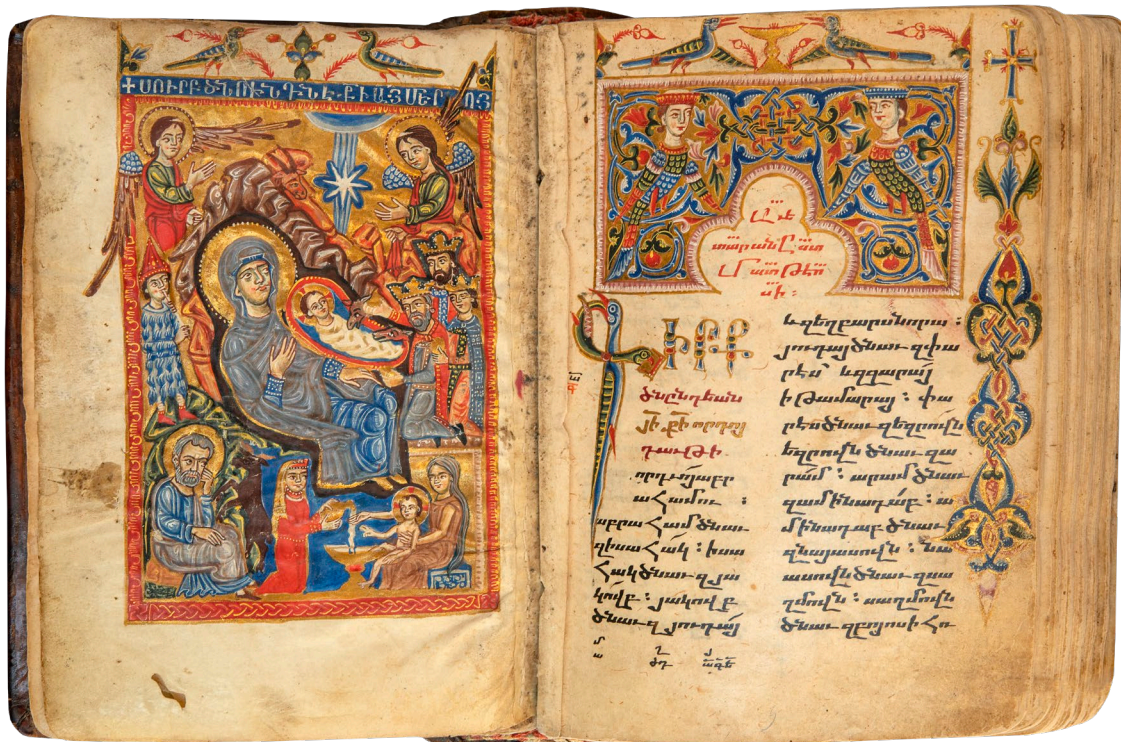 +ՍՈՒՐԲ ԾՆՈՒՆԴՆ Է ՔԻ ԱՅՍ
Աւե
տարան ըստ
Մատթէո
սի :
ԳԻՐՔ
ծննդեան
յի քի որդւոյ
դաւթի
որդւոյ աբր
ահամու :
աբրահամ ծնաւ
զիսահակ : իսա
հակ ծնաւ զյա
կովբ : յակովբ
ծնաւ զյուդայ
և զեղբարս նորա :
յուդայ ծնաւ զփա
րէս և զզարայ
ի թամարայ : փա
րէս ծնաւ զեզրովմ
եզրովմ ծնաւ զա
րամ : արամ ծնաւ
զամինադաբ : ա
մինադաբ ծնաւ
զնայասովն : նա
ասովն ծնաւ զսա
ղմովն : սաղմովն
ծնաւ զբոյոս ի հռ